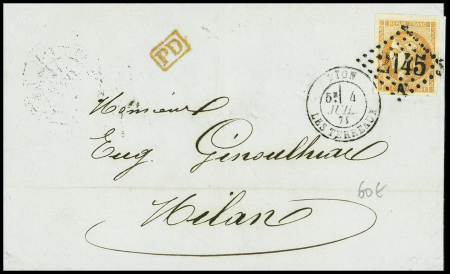 PD
REPUB. FRANC.
2145
A
LYON
5E 4
JUIL.
71
LES TERREAUX
Monsieur
Eug. Ginoulhiac
Milan
60€